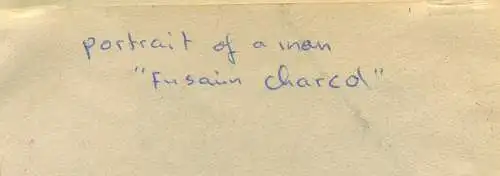 portrait of a man
"Fusain charcol"